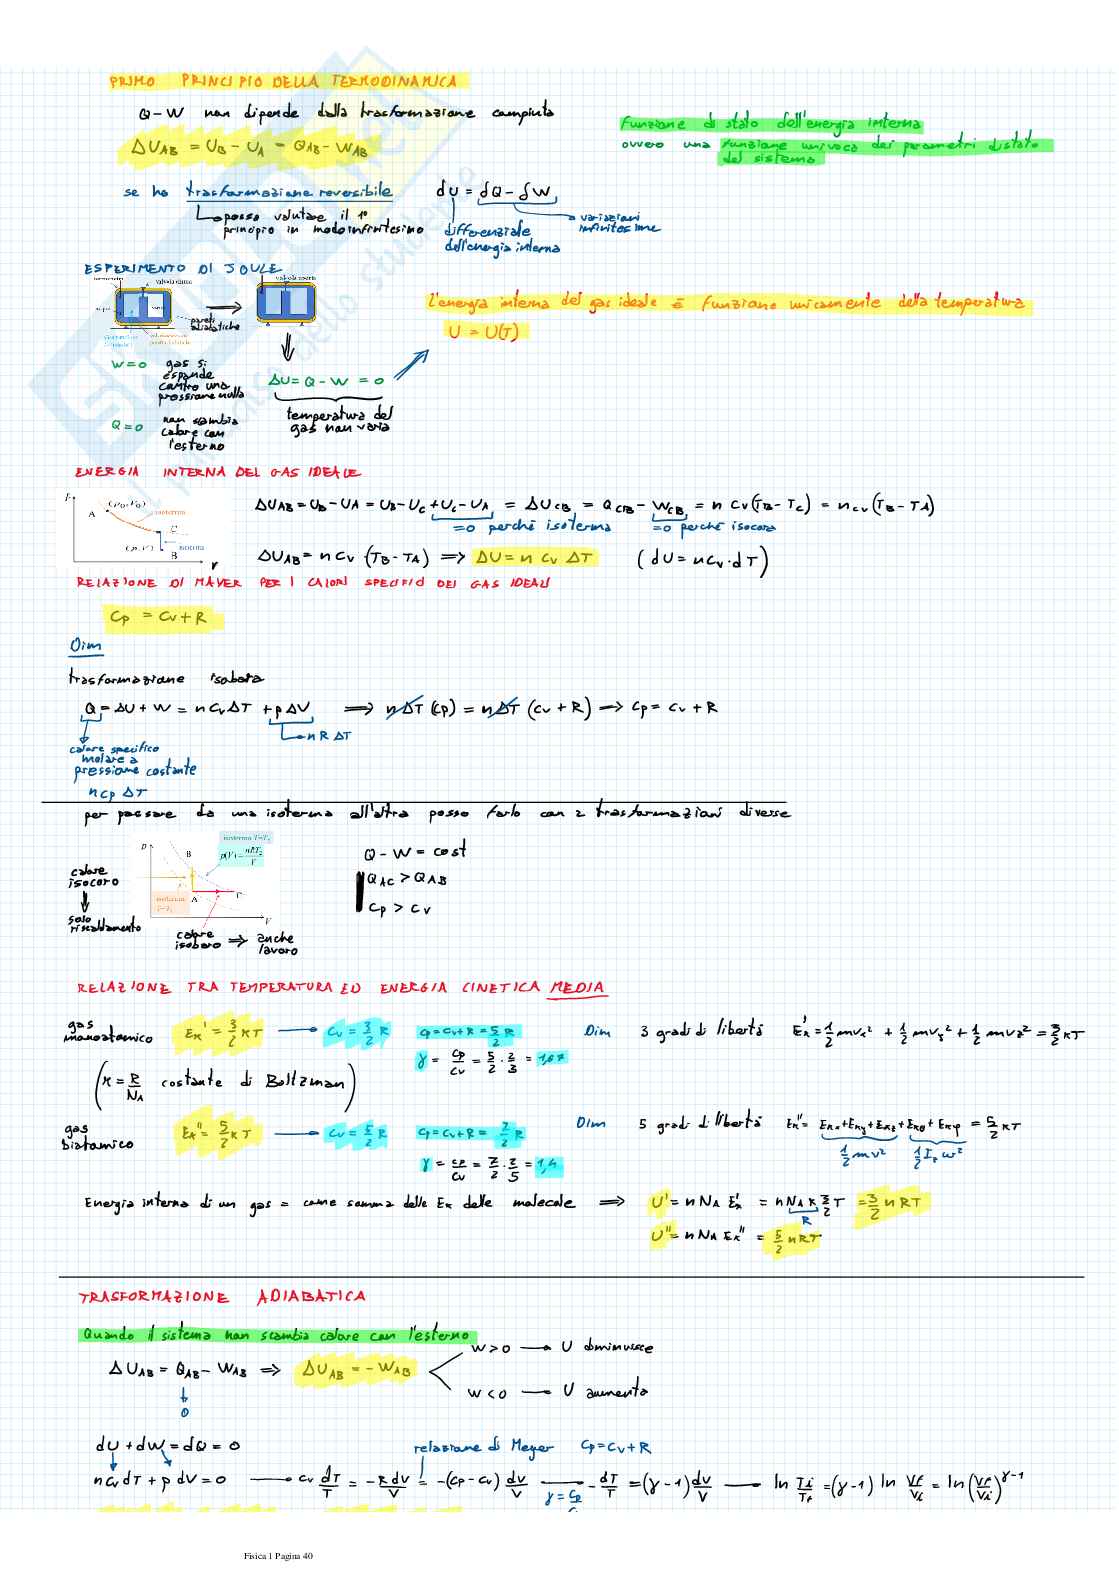 PRIMO PRINCIPIO DELLA TERMODINAMICA
Q-W non dipende dalla trasformazione compiuta
ΔU_AB = U_B - U_A = Q_AB - W_AB
Funzione di stato dell'energia interna
ovvero una funzione univoca dei parametri di stato
del sistema
se ho trasformazione reversibile
posso valutare il 1°
principio in modo infinitesimo
dU = dQ - dW
differenziale
dell'energia interna
variazioni
infinitesime
ESPERIMENTO DI JOULE
valvola chiusa
valvola aperta
pareti
adiabatiche
W=0 gas si
espande
contro una
pressione nulla
Q=0 non scambia
calore con
l'esterno
ΔU = Q - W = 0
temperatura del
gas non varia
L'energia interna del gas ideale è funzione unicamente della temperatura
U = U(T)
ENERGIA INTERNA DEL GAS IDEALE
A
isoterma
C
isocora
B
V
ΔU_AB = U_B - U_A = U_B - U_C + U_C - U_A = ΔU_CB = Q_CB - W_CB = n c_V (T_B - T_C) = n c_V (T_B - T_A)
=0 perché isoterma =0 perché isocora
ΔU_AB = n c_V · (T_B - T_A) ⇒ ΔU = n c_V ΔT (dU = n c_V · dT)
RELAZIONE DI MAYER PER I CALORI SPECIFICI DEI GAS IDEALI
c_p = c_V + R
Dim
trasformazione isobara
Q = ΔU + W = n c_V ΔT + p ΔV ⇒ n ΔT (c_p) = n ΔT (c_V + R) → c_p = c_V + R
nRΔT
calore specifico
molare a
pressione costante
n c_p ΔT
per passare da una isoterma all'altra posso farlo con 2 trasformazioni diverse
calore
isocoro
solo
riscaldamento
p
B
A
C
V
isoterma T=T₂
p(V) = nRT₂/V
calore
isobaro ⇒ anche
lavoro
Q - W = cost
Q_AC > Q_AB
c_p > c_V
RELAZIONE TRA TEMPERATURA ED ENERGIA CINETICA MEDIA
gas
monoatomico
E_K' = 3/2 KT → c_V = 3/2 R
c_p = c_V + R = 5/2 R
γ = c_p/c_V = 5/2 · 2/3 = 1,67
Dim 3 gradi di libertà E_K' = 1/2 m v_x² + 1/2 m v_y² + 1/2 m v_z² = 3/2 KT
(K = R/N_A costante di Boltzman)
gas
biatomico
E_K'' = 5/2 KT → c_V = 5/2 R
c_p = c_V + R = 7/2 R
γ = c_p/c_V = 7/2 · 2/5 = 1,4
Dim 5 gradi di libertà E_K'' = E_Kx + E_Ky + E_Kz + E_Kθ + E_Kφ = 5/2 KT
1/2 m v² 1/2 I_z ω²
Energia interna di un gas = come somma delle E_K delle molecole ⇒ U' = n N_A E_K' = n N_A K 3/2 T = 3/2 nRT
R
U'' = n N_A E_K'' = 5/2 nRT
TRASFORMAZIONE ADIABATICA
Quando il sistema non scambia calore con l'esterno
ΔU_AB = Q_AB - W_AB ⇒ ΔU_AB = - W_AB
0
W > 0 → U diminuisce
W < 0 → U aumenta
dU + dW = dQ = 0
relazione di Meyer c_p = c_V + R
n c_V dT + p dV = 0 → c_V dT/T = - R dV/V = -(c_p - c_V) dV/V → - dT/T = (γ-1) dV/V → ln T_i/T_f = (γ-1) ln V_f/V_i = ln (V_f/V_i)^γ-1
Fisica 1 Pagina 40